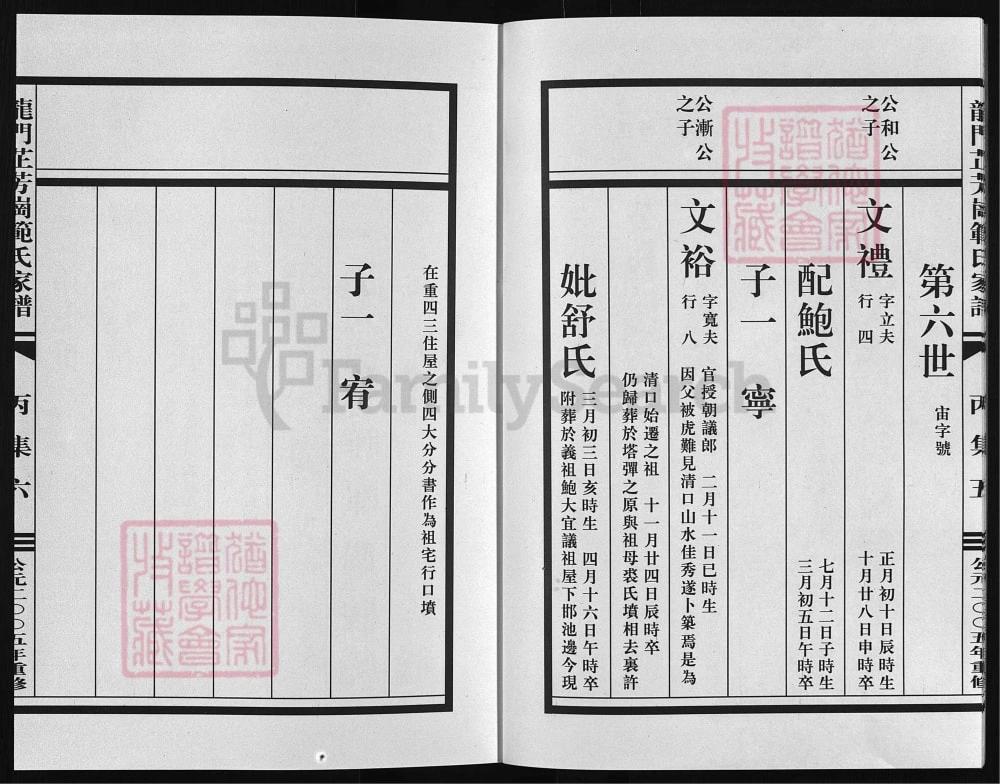 龍門芷芳崗範氏家譜
丙集五
公元二〇〇五年重修
第六世 宙字號
公和公
之子
文禮 字立夫
行四
正月初十日辰時生
十月廿八日申時卒
配鮑氏 七月十二日子時生
三月初五日午時卒
子一 寧
公漸公
之子
文裕 字寬夫 官授朝議郎 二月十一日巳時生
行八 因父被虎難見清口山水佳秀遂卜築焉是為
清口始遷之祖 十一月廿四日辰時卒
仍歸葬於塔彈之原與祖母裘氏墳相去裏許
妣舒氏 三月初三日亥時生 四月十六日午時卒
附葬於義祖鮑大宜議祖屋下邯池邊今現
在重四三住屋之側四大分分書作為祖宅行口墳
子一 宥
龍門芷芳崗範氏家譜
丙集六
公元二〇〇五年重修
猶他家
譜學會
收藏
猶他家
譜學會
收藏
FamilySearch